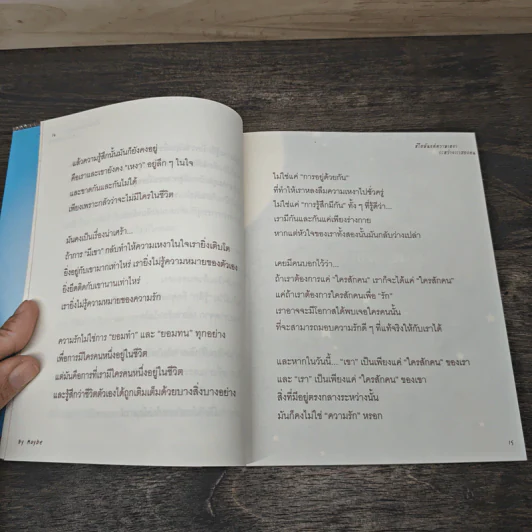 แล้วความรู้สึกนั้นมันก็ยังคงอยู่
คือเราและเขายังคง “เหงา” อยู่ลึก ๆ ในใจ
และขาดกันและกันไม่ได้
เพียงเพราะกลัวว่าจะไม่มีใครในชีวิต
มันคงเป็นเรื่องน่าเศร้า...
ถ้าการ “มีเขา” กลับทำให้ความเหงาในใจเรายิ่งเติบโต
ยิ่งอยู่กับเขามากเท่าไหร่ เรายิ่งไม่รู้ความหมายของตัวเอง
ยิ่งยึดติดกับเขานานเท่าไหร่
เรายิ่งไม่รู้ความหมายของความรัก
ความรักไม่ใช่การ “ยอมทำ” และ “ยอมทน” ทุกอย่าง
เพื่อการมีใครคนหนึ่งอยู่ในชีวิต
แต่มันคือการที่เรามีใครคนหนึ่งอยู่ในชีวิต
และรู้สึกว่าชีวิตตัวเองได้ถูกเติมเต็มด้วยบางสิ่งบางอย่าง
By Maybe
ไม่ใช่แค่ “การอยู่ด้วยกัน”
ที่ทำให้เราหลงลืมความเหงาไปชั่วครู่
ไม่ใช่แค่ “การรู้สึกมีกัน” ทั้ง ๆ ที่รู้ดีว่า...
เรามีกันและกันแค่เพียงร่างกาย
หากแต่หัวใจของเราทั้งสองนั้นมันกลับว่างเปล่า
เคยมีคนบอกไว้ว่า...
ถ้าเราต้องการแค่ “ใครสักคน” เราก็จะได้แค่ “ใครสักคน”
แต่ถ้าเราต้องการใครสักคนเพื่อ “รัก”
เราอาจจะมีโอกาสได้พบเจอใครคนนั้น
ที่จะสามารถมอบความรักดี ๆ ที่แท้จริงให้กับเราได้
และหากในวันนี้... “เขา” เป็นเพียงแค่ “ใครสักคน” ของเรา
และ “เรา” เป็นเพียงแค่ “ใครสักคน” ของเขา
สิ่งที่มีอยู่ตรงกลางระหว่างนั้น
มันก็คงไม่ใช่ “ความรัก” หรอก
15